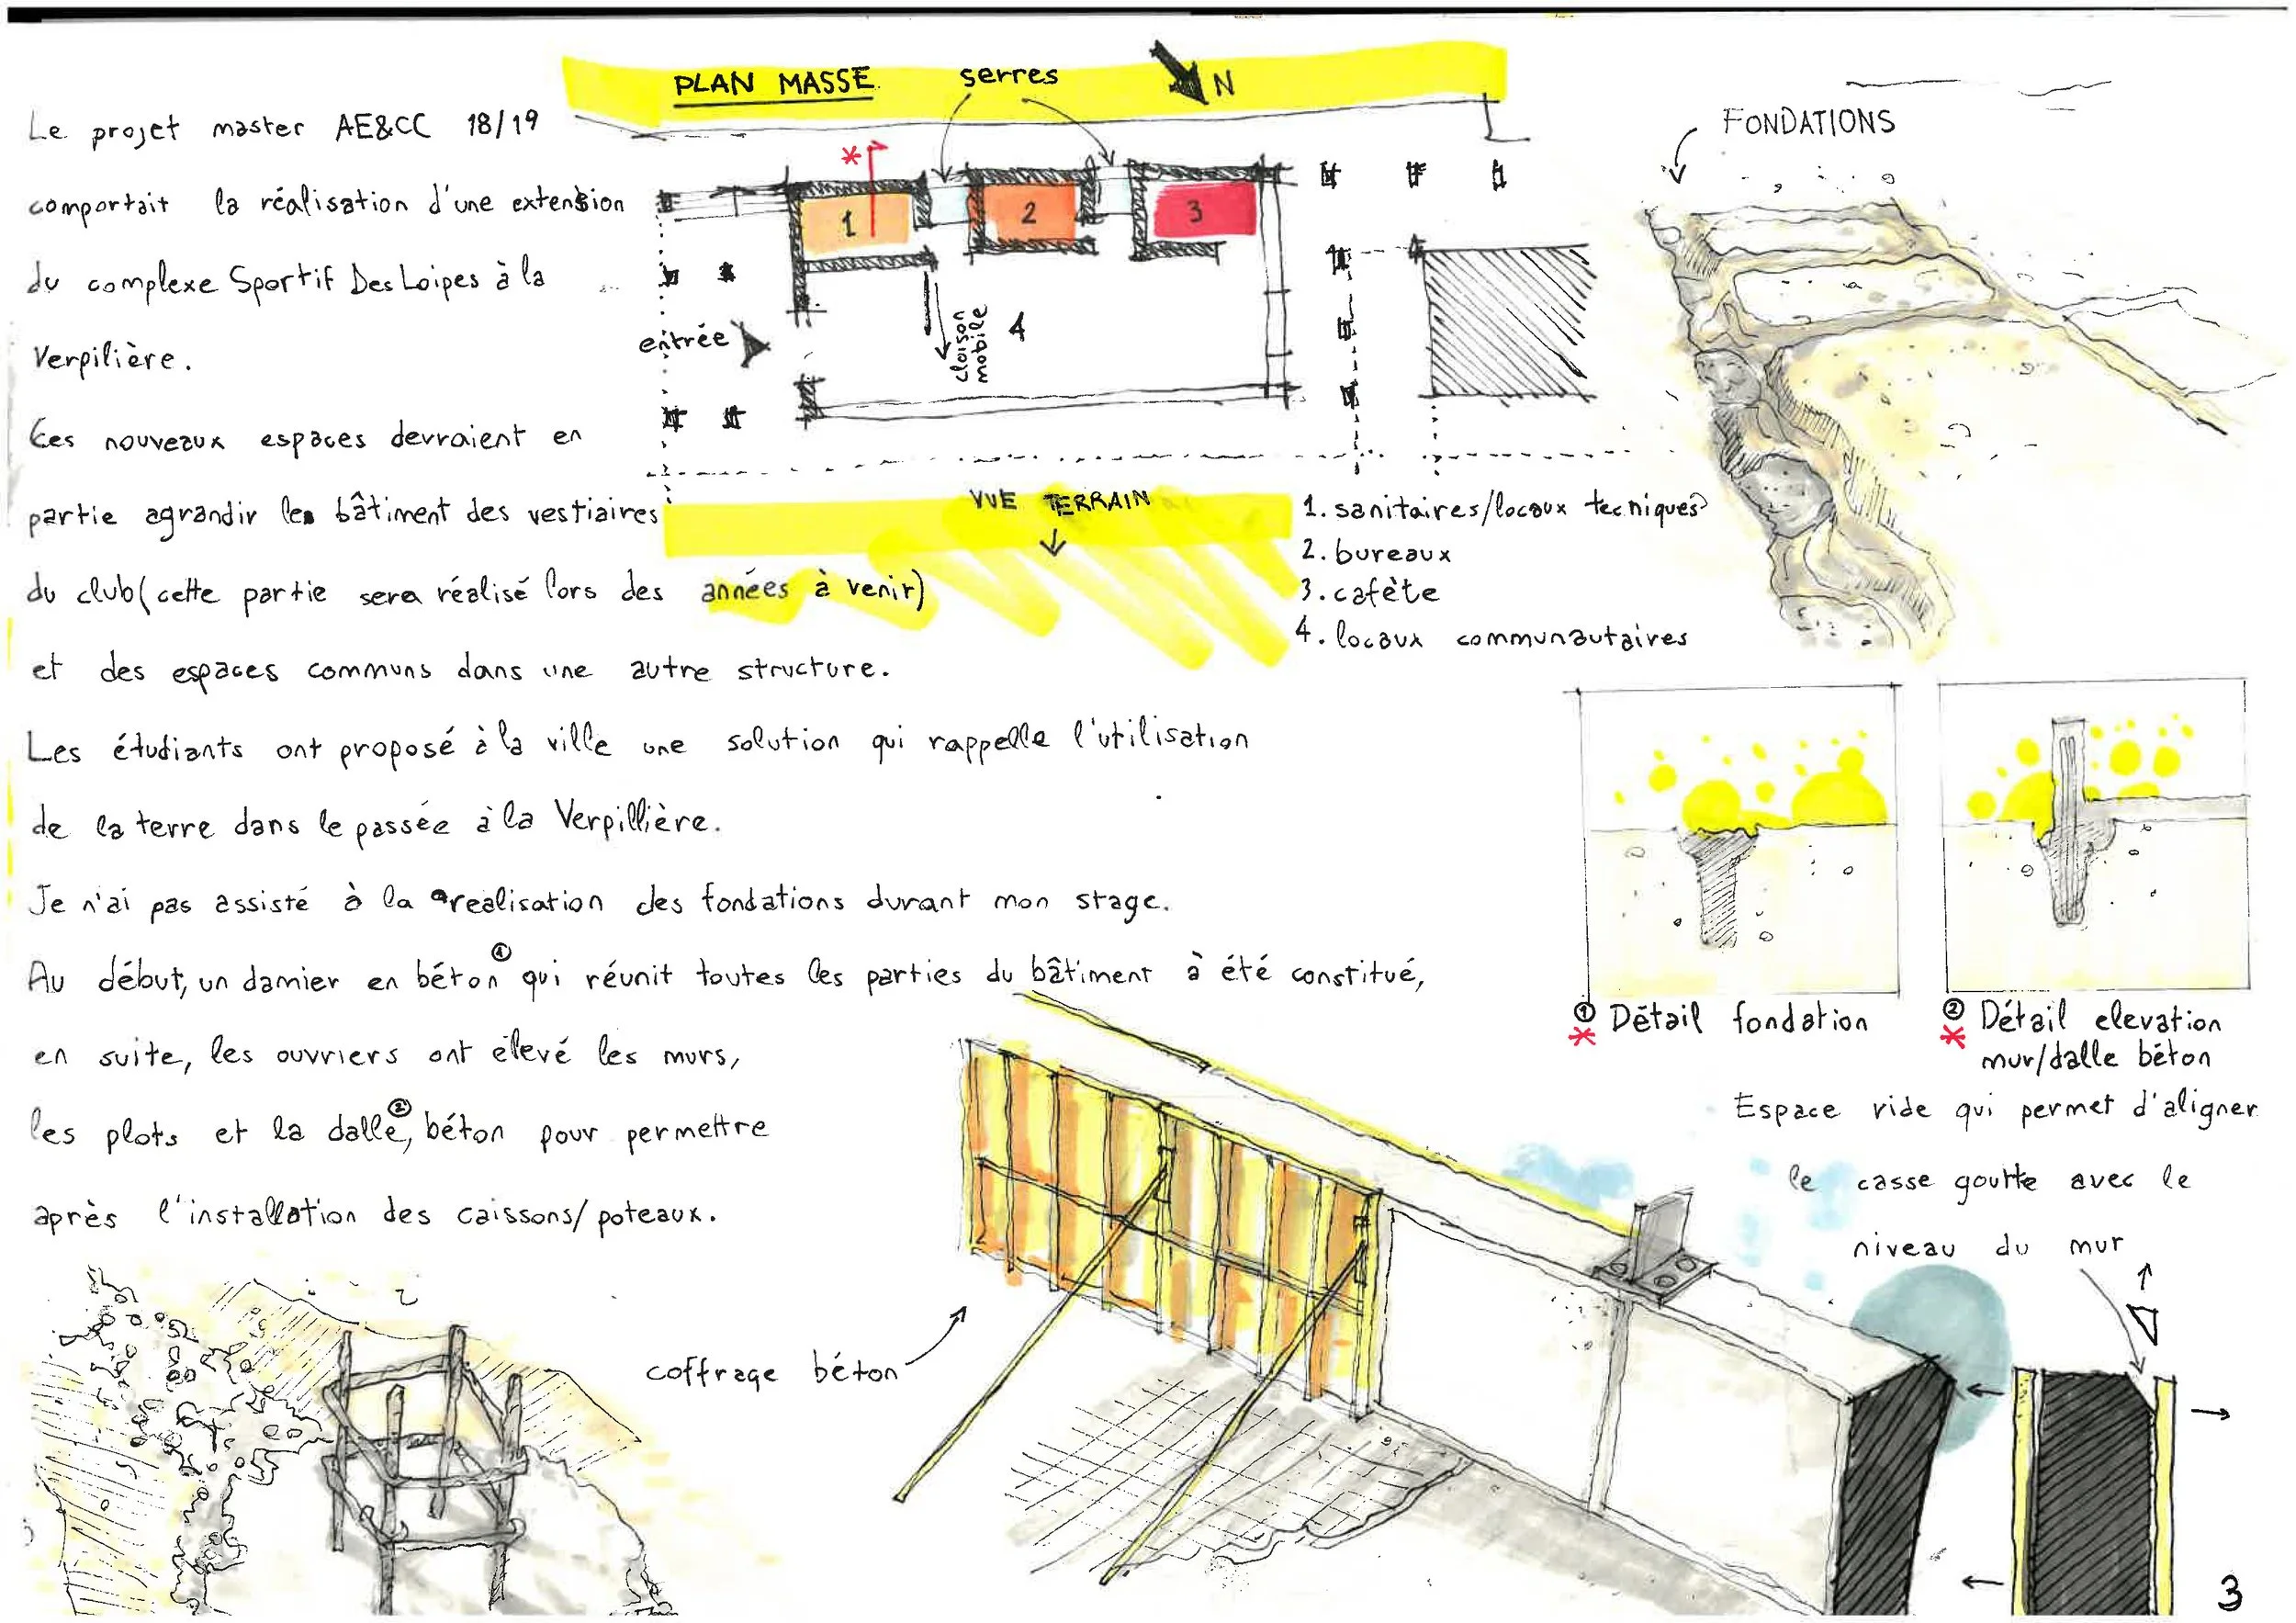 PLAN MASSE
serres
N
FONDATIONS
Le projet master AE&CC 18/19
comportait la réalisation d'une extension
du complexe Sportif Des Loipes à la
Verpilière.
Ces nouveaux espaces devraient en
partie agrandir les bâtiment des vestiaires
du club (cette partie sera réalisé lors des années à venir)
et des espaces communs dans une autre structure.
Les étudiants ont proposé à la ville une solution qui rappelle l'utilisation
de la terre dans le passée à la Verpillière.
Je n'ai pas assisté à la realisation des fondations durant mon stage.
Au début, un damier en béton ① qui réunit toutes les parties du bâtiment à été constitué,
en suite, les ouvriers ont élevé les murs,
les plots et la dalle ②, béton pour permettre
après l'installation des caissons/poteaux.
*
1
2
3
entrée
cloison
mobile
4
VUE TERRAIN
1. sanitaires/locaux tecniques
2. bureaux
3. cafète
4. locaux communautaires
① * Détail fondation
② * Détail elevation
mur/dalle béton
Espace vide qui permet d'aligner
le casse goutte avec le
niveau du mur
coffrage béton
3